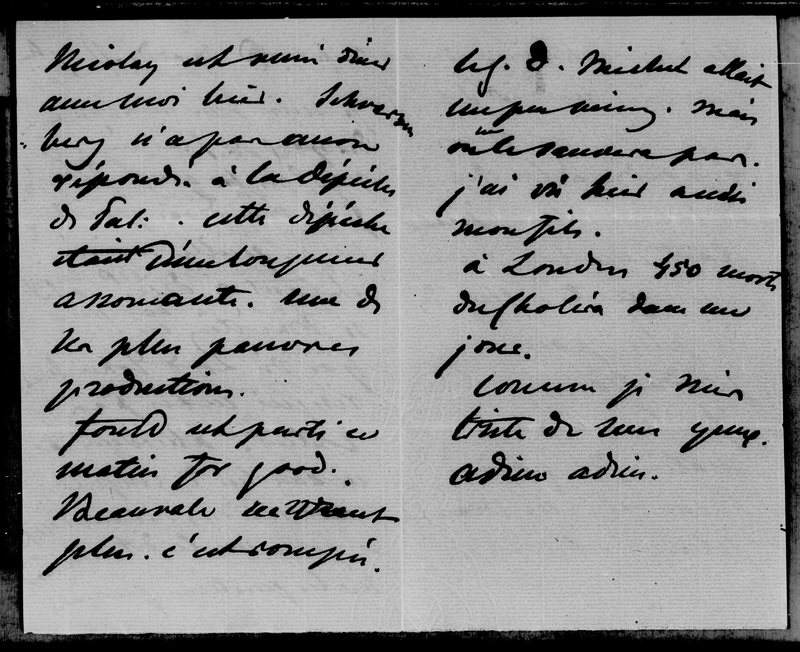 Nicolay est venu diner
avec moi hier. Schwarzen
berg n'a pas encore
répondu. à la dépêche
de Pal: . cette dépêche
était d'une longueur
assomante. une de
les plus pauvres
productions.
Fould est parti ce
matin for good.
Beauvale ne veut
plus. c'est rompu.
le G. D. Michel allait
un peu mieux. mais
on le sauvera pas.
j'ai vu hier aussi
mon fils.
à Londres 450 morts
du Choléra dans un
jour.
comme je suis
triste de mes yeux.
adieu adieu.